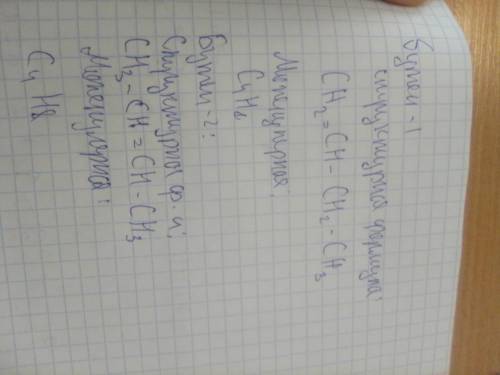 Бутен-1
структурная формула:
CH₂=CH-CH₂-CH₃
Молекулярная:
C₄H₈
Бутен-2:
Структурная ф-л:
CH₃-CH=CH-CH₃
Молекулярная:
C₄ H₈